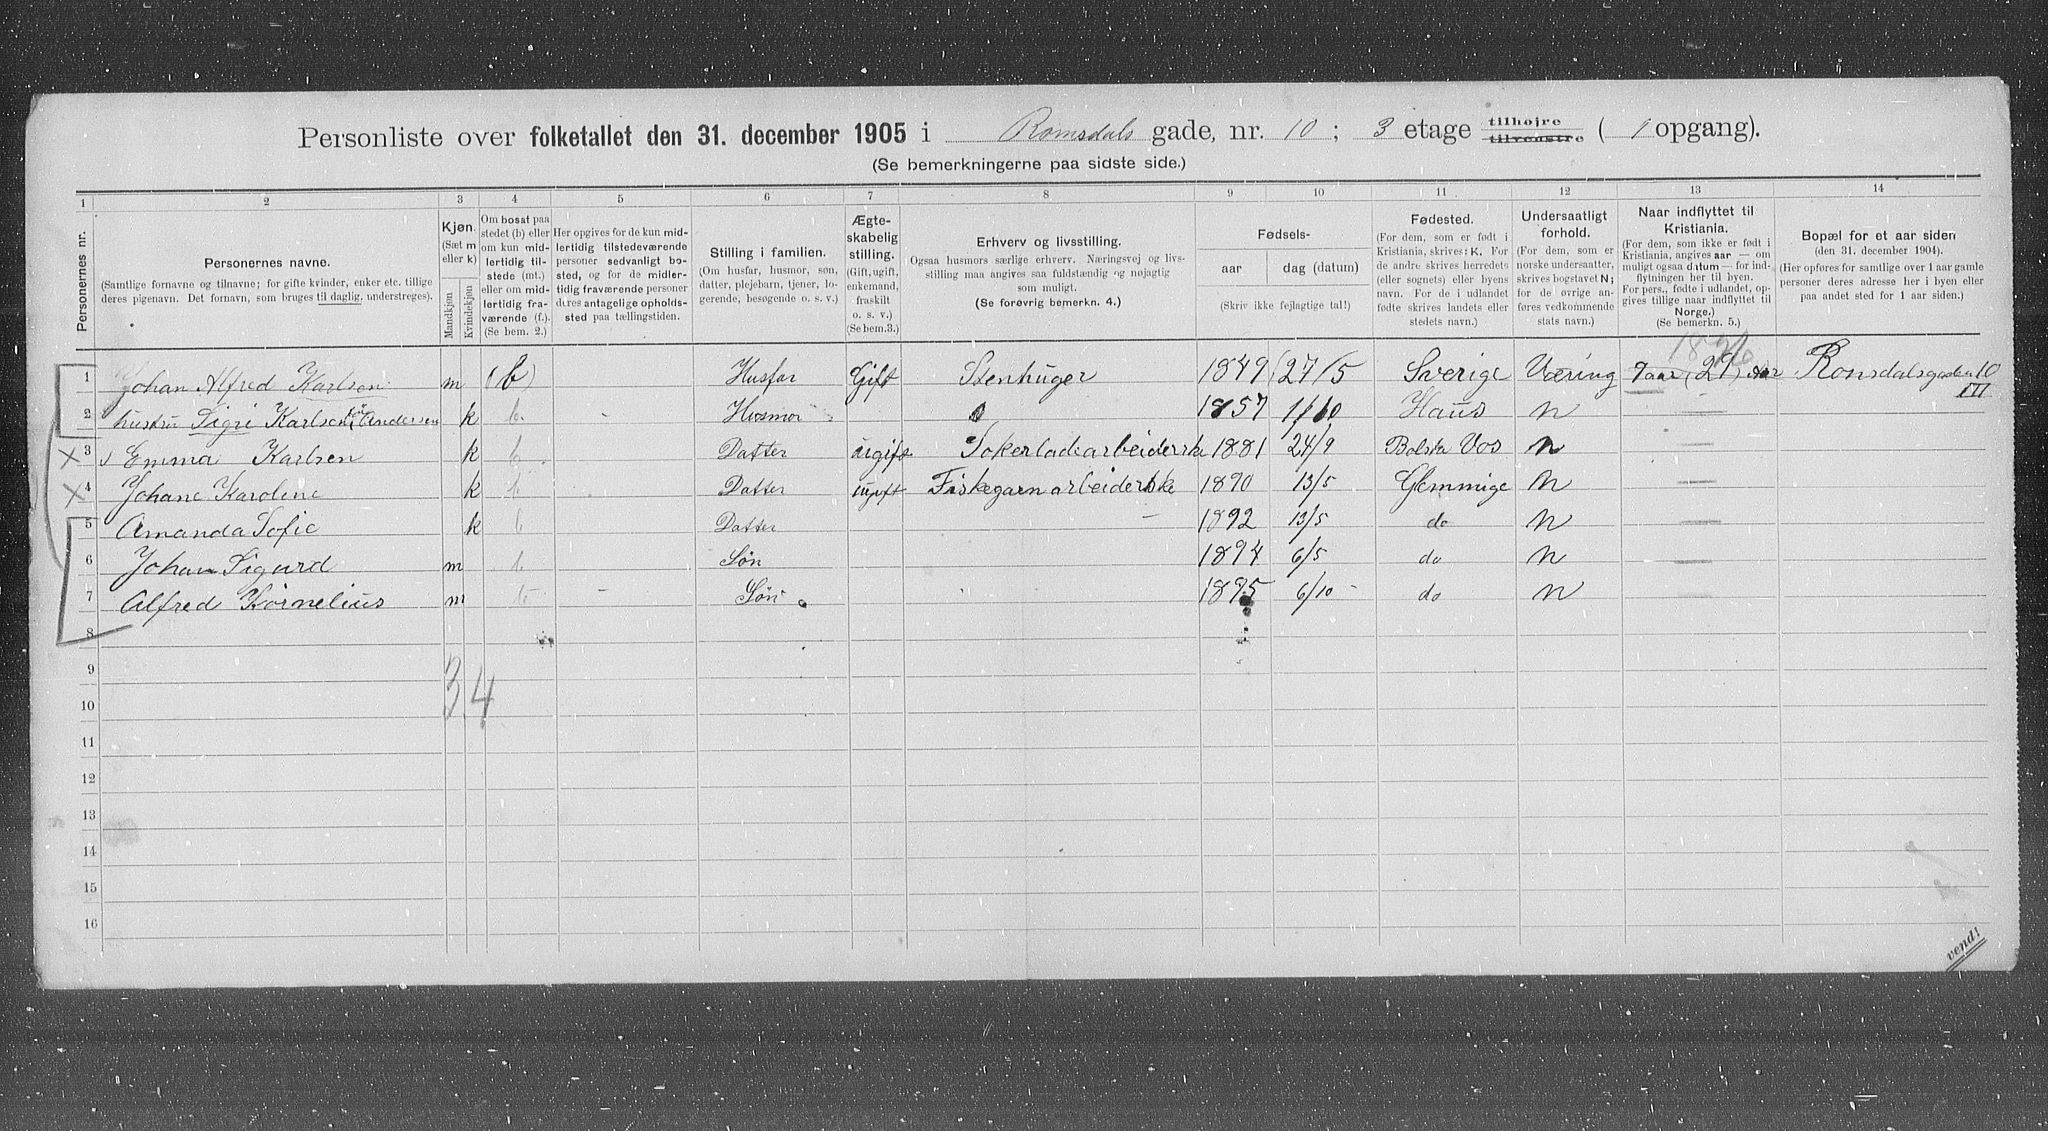 Personliste over folketallet den 31. december 1905 i Romsdals gade, nr. 10; 3 etage tilhøjre tilvenstre ( 1 opgang).
(Se bemerkningerne paa sidste side.)
1 2 3 4 5 6 7 8 9 10 11 12 13 14
Personernes nr.
Personernes navne.
(Samtlige fornavne og tilnavne; for gifte kvinder, enker etc. tillige
deres pigenavn. Det fornavn, som bruges til daglig, understreges).
Kjøn.
(Sæt m
eller k)
Mandkjøn
Kvindekjøn
Om bosat paa
stedet (b) eller
om kun mid-
lertidig til-
stede (mt.)
eller om mid-
lertidig fra-
værende (f.).
(Se bem. 2.)
Her opgives for de kun mid-
lertidig tilstedeværende
personer sedvanligt bo-
sted, og for de midler-
tidig fraværende personer
deres antagelige opholds-
sted paa tællingstiden.
Stilling i familien.
(Om husfar, husmor, søn,
datter, plejebarn, tjener, lo-
gerende, besøgende o. s. v.)
Ægte-
skabelig
stilling.
(Gift, ugift,
enkemand,
fraskilt
o. s. v.)
(Se bem.3.)
Erhverv og livsstilling.
Ogsaa husmors særlige erhverv. Næringsvej og livs-
stilling maa angives saa fuldstændig og nøjagtig
som muligt.
(Se forøvrig bemerkn. 4.)
Fødsels-
aar dag (datum)
(Skriv ikke fejlagtige tal!)
Fødested.
(For dem, som er født i
Kristiania, skrives: K. For
de andre skrives herredets
(eller sognets) eller byens
navn. For de i udlandet
fødte skrives landets eller
stedets navn.)
Undersaatligt
forhold.
(For dem, som er
norske undersaatter,
skrives bogstavet N;
for de øvrige an-
føres vedkommende
stats navn.)
Naar indflyttet til
Kristiania.
(For dem, som ikke er født i
Kristiania, angives aar — om
muligt ogsaa datum — for ind-
flytningen her til byen.
For pers., fødte i udlandet, op-
gives tillige naar indflyttet til
Norge.)
(Se bemerkn. 5.)
Bopæl for et aar siden
(den 31. december 1904).
(Her opføres for samtlige over 1 aar gamle
personer deres adresse her i byen eller
paa andet sted for 1 aar siden.)
1 Johan Alfred Karlsen m (b) Husfar Gift Stenhuger 1849 27/5 Sverige 7 aar (29) aar Romsdalsgaden 10 III
2 hustru Sigri Karlsen Andersen k b. Husmor 1857 Haus N
3 Emma Karlsen k b Datter ugift 1881 24/9 Vos N
4 Johane Karoline k b Datter ugift Fiskegarnarbeiderske 1890 13/5 Glemmige N
5 Amanda Sofie k b Datter 1892 13/5 do N
6 Johan Sigurd m b Søn 1894 6/5 do N
7 Alfred Kornelius m b Søn 1895 6/10 do N
8
9
3 4
10
11
12
13
14
15
16
vend!